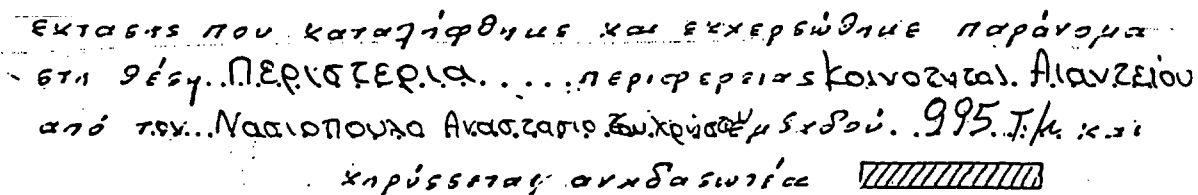 εκτασης που καταλήφθηκε και εκχερσώθηκε παράνομα
στη θέση..ΠΕΡΙΣΤΕΡΙΑ.....περιφερειας Κοινοτητας. Αιαντείου
από τον...Νασιοπουλο Αναστασιο του Χρήστου μεχδού. 995 Τ.Μ. και
κηρύσσεται αναδασωτέα